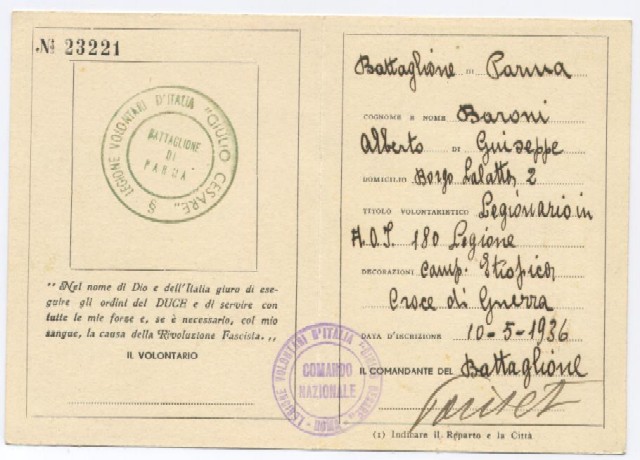 № 23221
LEGIONE VOLONTARI D'ITALIA "GIULIO CESARE" §
BATTAGLIONE
DI
PARMA
"Nel nome di Dio e dell'Italia giuro di ese-
guire gli ordini del DUCE e di servire con
tutte le mie forse e, se è necessario, col mio
sangue, la causa della Rivoluzione Fascista.„
IL VOLONTARIO
LEGIONE VOLONTARI D'ITALIA "GIULIO CESARE" - ROMA -
COMANDO
NAZIONALE
Battaglione DI Parma
COGNOME E NOME Baroni
Alberto DI Guiseppe
DOMICILIO Borgo 2
TITOLO VOLONTARISTICO Legionario in
A.O.I. 180 Legione
DECORAZIONI Camp. Etiopica
Croce di Guerra
DATA D'ISCRIZIONE 10-5-1936
IL COMANDANTE DEL Battaglione
(1) Indicare il Reparto e la Città